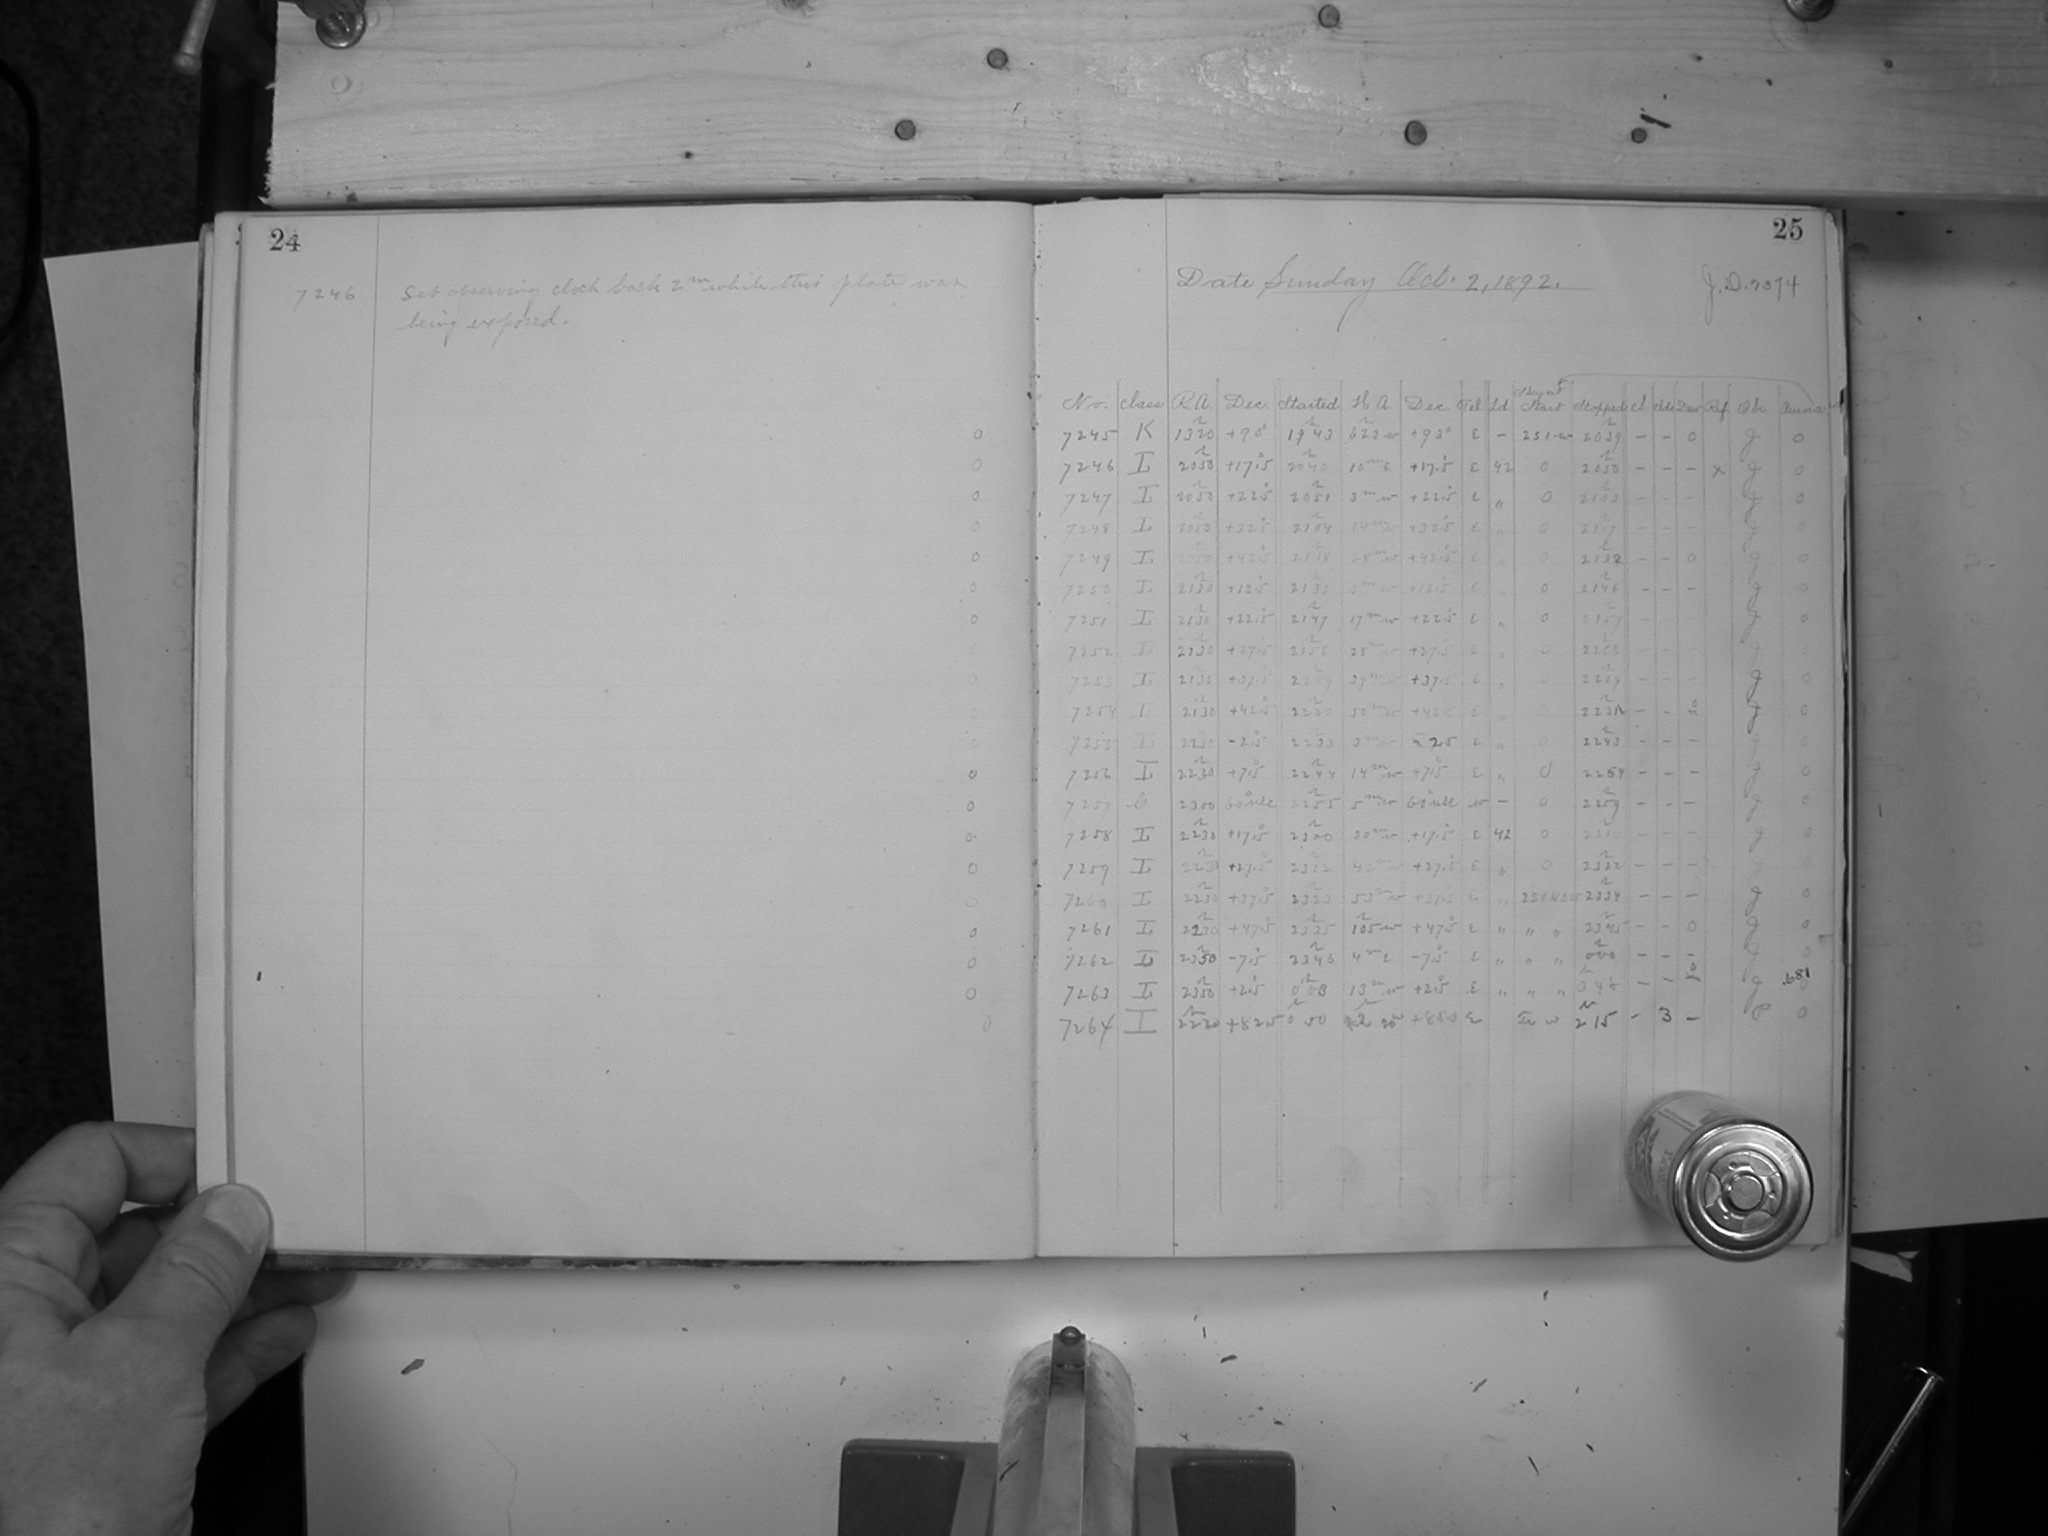 24
7246 Set observing clock back 2m while this plate was
being exposed.
25
Date Sunday Oct. 2, 1892.
J.D. 2374
No. Class R.A. Dec. Started H.A. Dec. Tel Ld Start Stopped Cl. Clds Dew Ref. Obs.
7245 K 1320 +90° 1943 623 w +90° E - 251 w 2039 - - 0 J 0
7246 L 2050 +17.5 2040 10m E +17.5 E 42 0 2050 - - - x J 0
7247 L 2050 +22.5 2051 3m w +22.5 E " 0 2103 - - - J 0
7248 L 2050 +32.5 2104 14m w +32.5 E " 0 2117 - - - J 0
7249 L 2050 +42.5 2118 28m w +42.5 E " 0 2132 - - 0 J 0
7250 L 2130 +12.5 2135 5m w +12.5 E " 0 2146 - - - J 0
7251 L 2130 +22.5 2147 17m w +22.5 E " 0 2157 - - - J 0
7252 L 2130 +27.5 2158 28m w +27.5 E " 0 2208 - - - J 0
7253 L 2130 +37.5 2209 39m w +37.5 E " 0 2219 - - - J 0
7254 L 2130 +42.5 2220 50m w +42.5 E " 0 - - J 0
7255 L 2230 -2.5 2233 3m w -2.5 E " 0 2243 - - - J 0
7256 L 2230 +7.5 2244 14m w +7.5 E " 0 2254 - - - J 0
7257 2300 2255 5m w w - 0 2259 - - - J 0
7258 L 2230 +17.5 2300 30m w +17.5 E 42 0 2310 - - - J 0
7259 L 2230 +27.5 2312 42m w +27.5 E " 0 2322 - - - J
7260 L 2230 +37.5 2323 53m w +37.5 E " 2334 - - - J 0
7261 L 2230 +47.5 2335 105 w +47.5 E " " " 2345 - - 0 J 0
7262 L 2350 -7.5 2346 4m E -7.5 E " " " 000 - - - J 0
7263 L 2350 +2.5 003 13m w +2.5 E " " " - - J .681
7264 I 2220 +82.5 0 50 E w 2 15 - 3 - 0